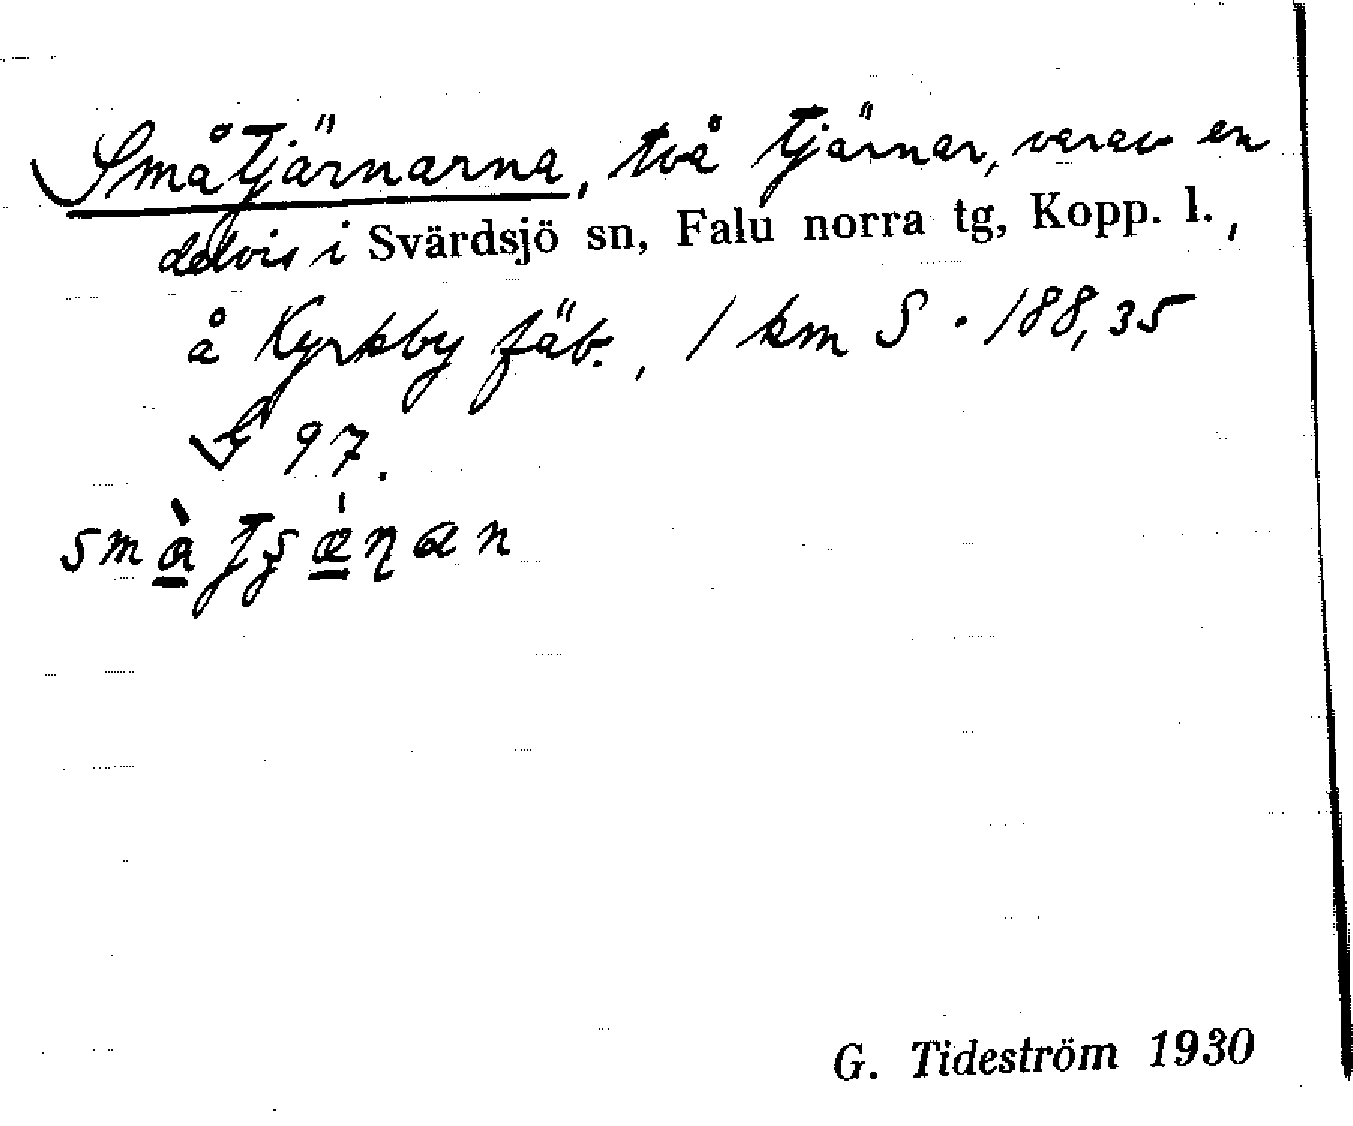 Småtjärnarna, två tjärnar, varav en
delvis i Svärdsjö sn, Falu norra tg, Kopp. l.,
å Kyrkby fäb., 1 km S. 188,35
G 97.
G. Tideström 1930